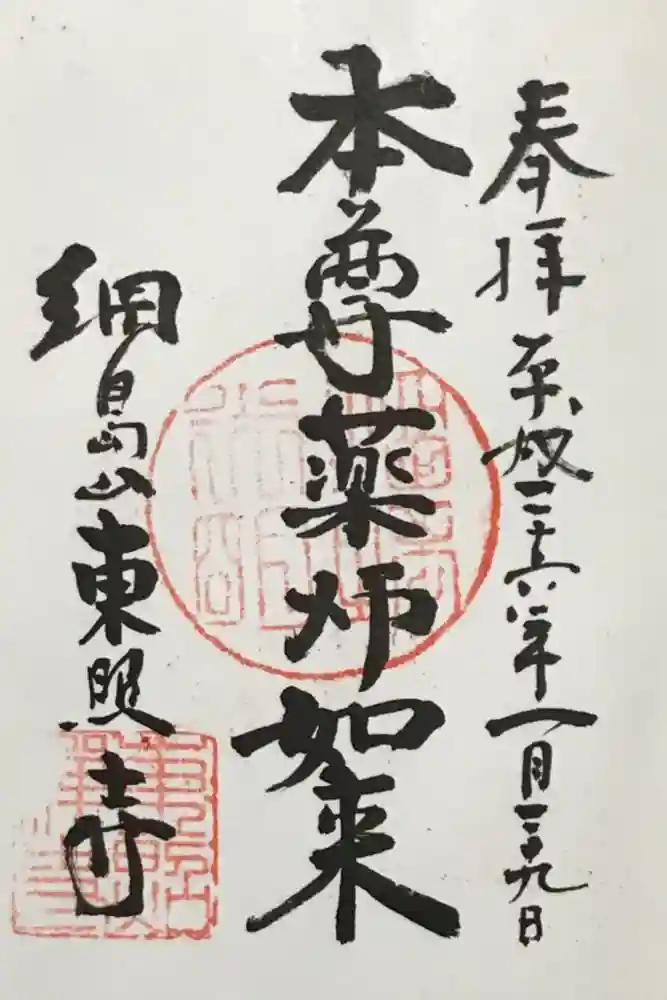 奉拝 平成二十六年一月二十九日
本尊薬師如来
綱島山東照寺